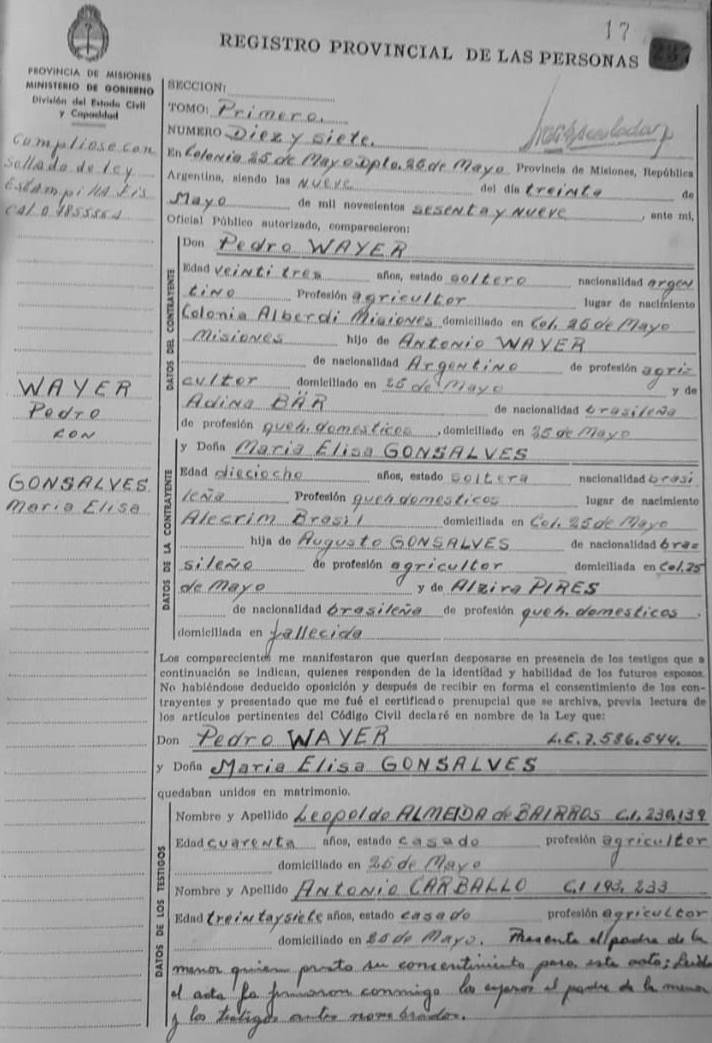 17
REGISTRO PROVINCIAL DE LAS PERSONAS
PROVINCIA DE MISIONES
MINISTERIO DE GOBIERNO
División del Estado Civil
y Capacidad
Cumpliose con
Sellado de ley
WAYER
Pedro
CON
GONSALVES
Maria Elisa
SECCION:
TOMO: Primero.
NUMERO Diez y siete.
En Colonia 25 de Mayo Dpto. 25 de Mayo Provincia de Misiones, República
Argentina, siendo las Nueve del día treinta de
Mayo de mil novecientos sesenta y Nueve, ante mí,
Oficial Público autorizado, comparecieron:
DATOS DEL CONTRAYENTE
Don Pedro WAYER
Edad veinti tres años, estado soltero nacionalidad argen
tino Profesión agricultor lugar de nacimiento
Colonia Alberdi Misiones domiciliado en Col. 25 de Mayo
Misiones hijo de Antonio WAYER
de nacionalidad Argentino de profesión agri
cultor domiciliado en 25 de Mayo y de
Adina BÄR de nacionalidad brasileña
de profesión queh. domesticos, domiciliado en 25 de Mayo
DATOS DE LA CONTRAYENTE
y Doña Maria Elisa GONSALVES
Edad dieciocho años, estado soltera nacionalidad brasi
leña Profesión queh domesticos lugar de nacimiento
Alecrim Brasil domiciliada en Col. 25 de Mayo
hija de Augusto GONSALVES de nacionalidad bra
sileño de profesión agricultor domiciliada en Col. 25
de Mayo y de Alzira PIRES
de nacionalidad brasileña de profesión queh. domesticos.
domiciliada en fallecida
Los comparecientes me manifestaron que querían desposarse en presencia de los testigos que a
continuación se indican, quienes responden de la identidad y habilidad de los futuros esposos.
No habiéndose deducido oposición y después de recibir en forma el consentimiento de los con-
trayentes y presentado que me fué el certificado prenupcial que se archiva, previa lectura de
los artículos pertinentes del Código Civil declaré en nombre de la Ley que:
Don Pedro WAYER L.E. 7.586.544.
y Doña Maria Elisa GONSALVES
quedaban unidos en matrimonio.
DATOS DE LOS TESTIGOS
Nombre y Apellido Leopoldo ALMEIDA de BAIRROS C.I. 230.139
Edad cuarenta años, estado casado profesión agricultor
domiciliado en 25 de Mayo
Nombre y Apellido Antonio CARBALLO C.I 193.233
Edad treinta y siete años, estado casado profesión agricultor
domiciliado en 25 de Mayo. Presente el padre de la
menor quien presto su consentimiento para este acto; Leida
el acta la firmaron conmigo los esposos el padre de la menor
y los testigos antes nombrados.